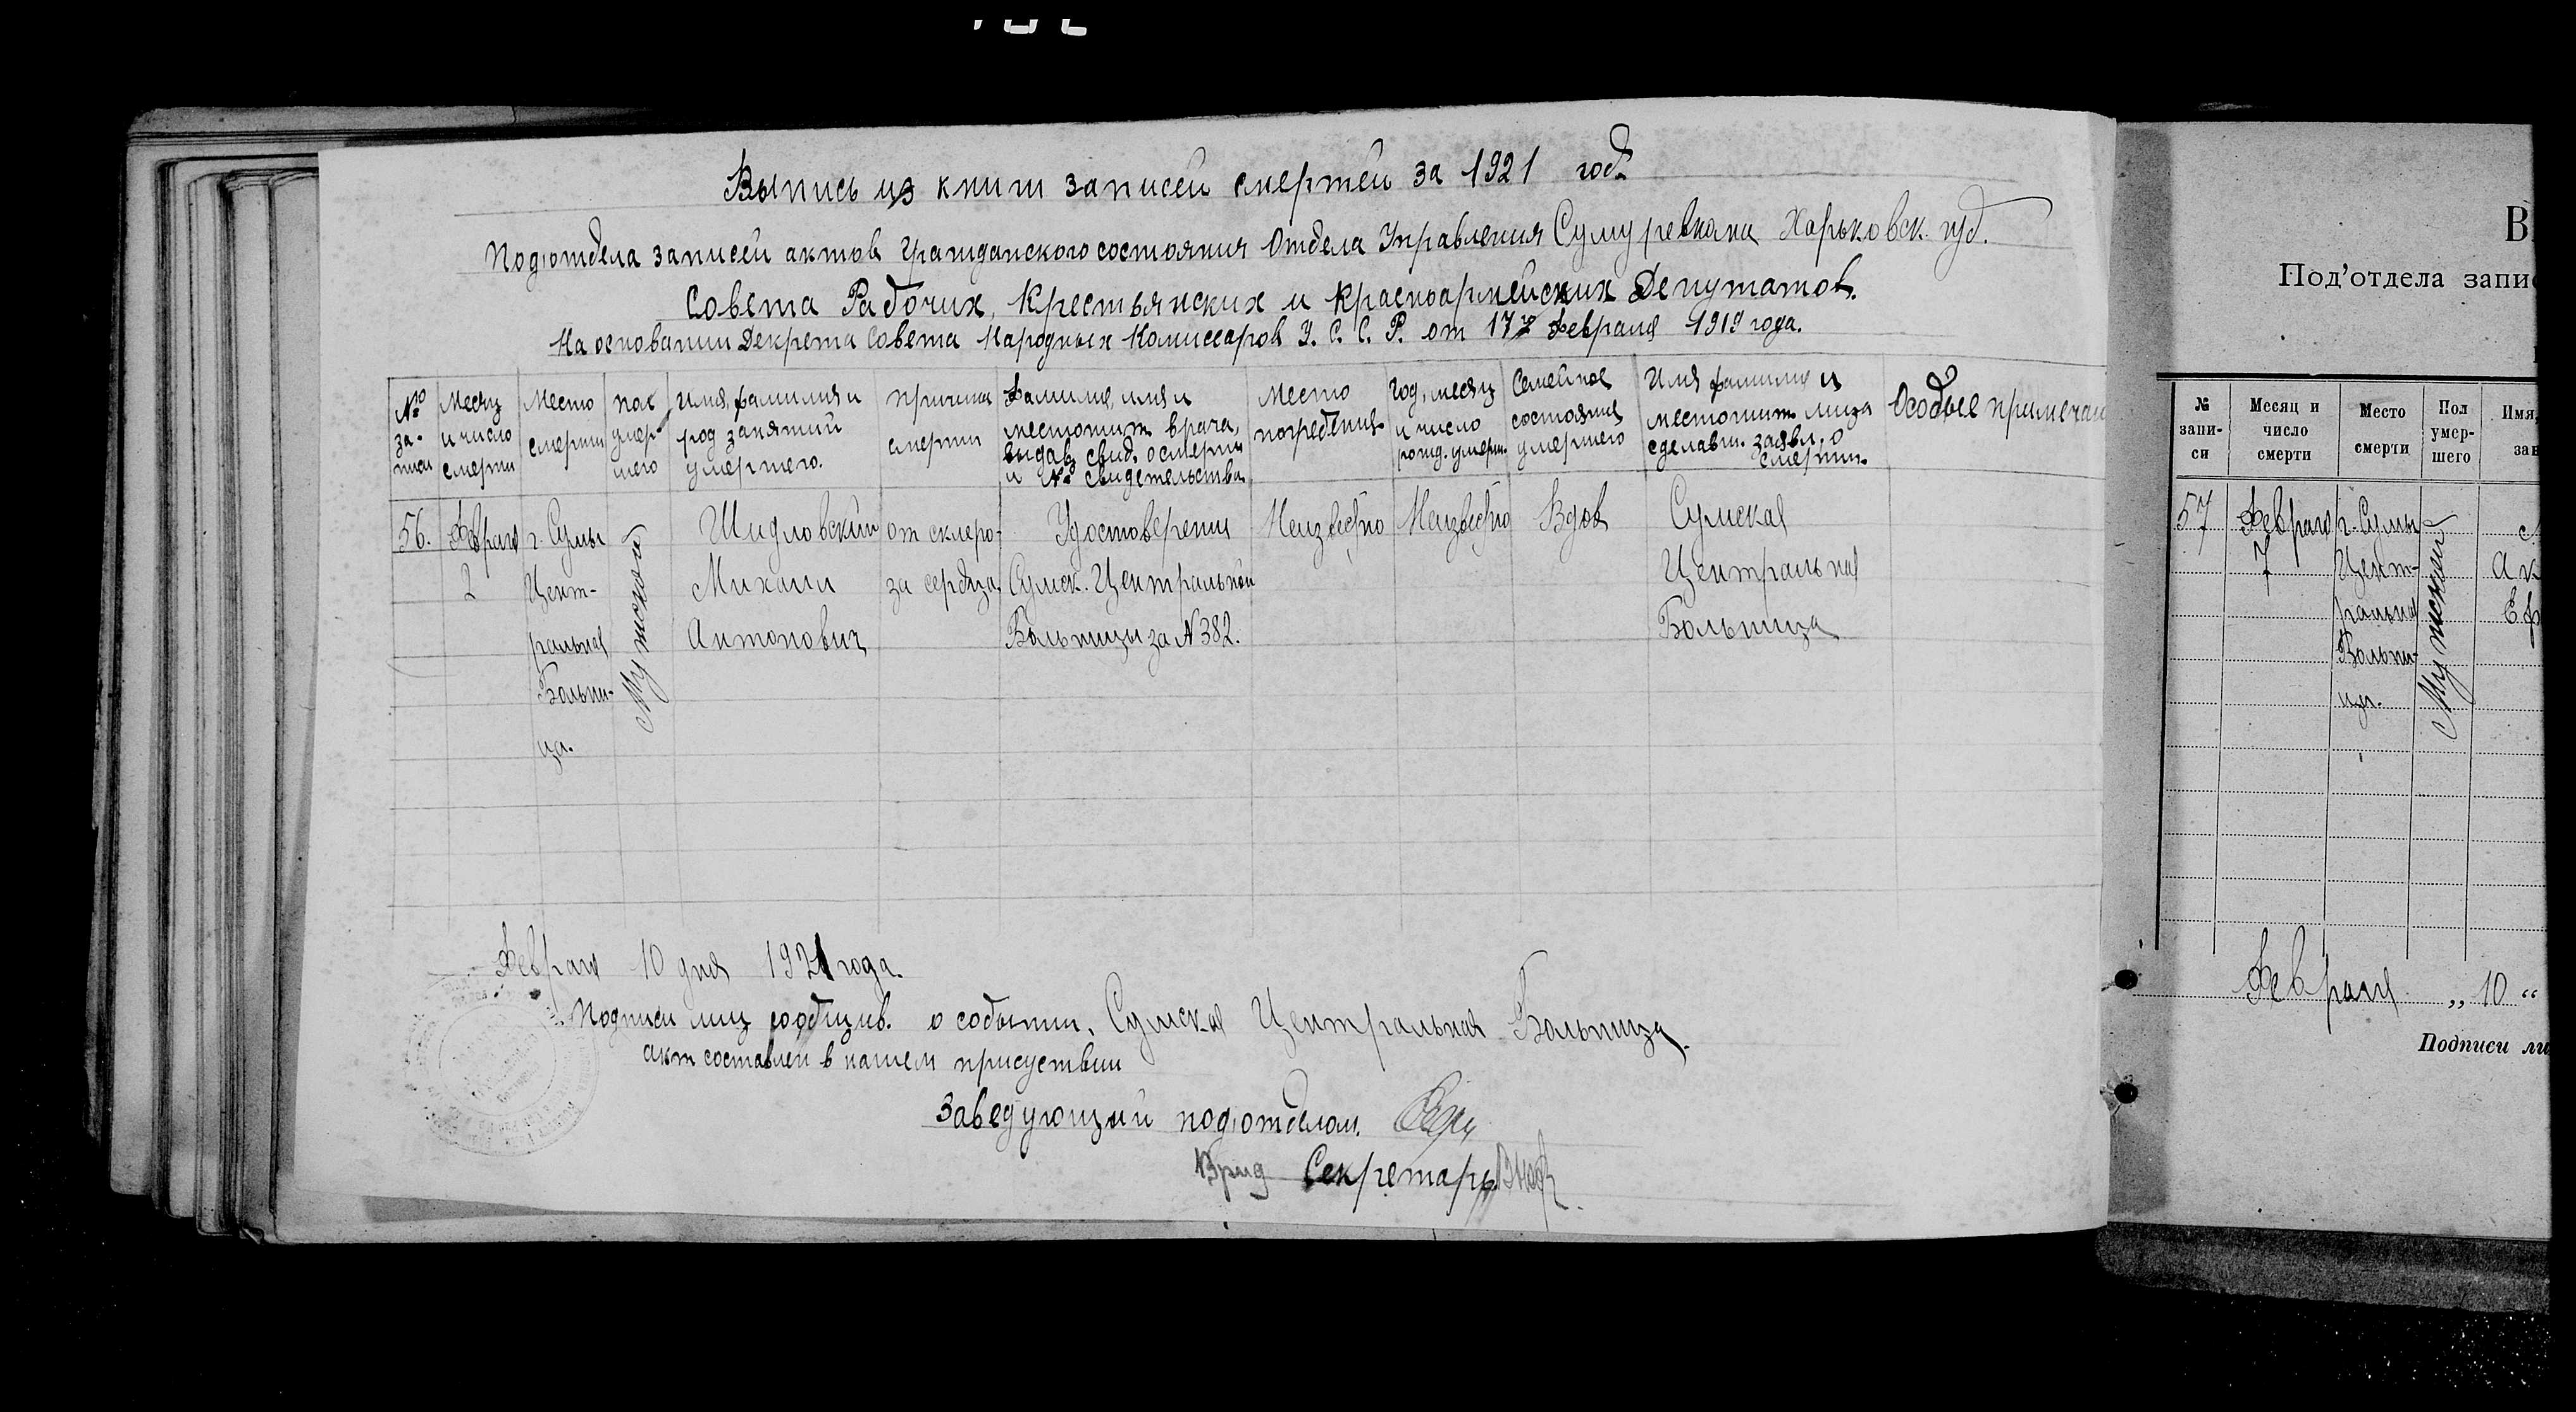 Выпись из книги записей смертей за 1921 год
Под'отдела записей актов Гражданского состояния Отдела Управления Сумуревкома Харьковск. губ.
Совета Рабочих, Крестьянских и Красноармейских Депутатов.
На основании Декрета Совета Народных Комиссаров У. С. С. Р. от 17го Февраля 1919 года.
№ за-писи
Месяц и число смерти
Место смерти
пол умер-шего
Имя, фамилия и род занятий умершего.
причина смерти
Фамилия, имя и местожит. врача, выдав. свид. о смерти и № свидетельства
Место погребения
Год, месяц и число рожд. умерш.
Семейное состояние умершего
Имя фамилия и местожит. лица сделавш. заявл. о смерти.
Особые примечан
56. Февраля г. Сумы Мужской Шидловский от склеро- Удостоверения Неизвестно Неизвестно Вдов Сумская
2 Цент- Михаил за сердца Сумск. Центральной Центральная
ральная Антонович Больницы за № 382. Больница
Больни-
ца.
Февраля 10 дня 1921 года.
Подписи лиц сообщив. о событии. Сумская Центральная Больница.
акт составлен в нашем присуствии
Заведующий под'отделом.
Врид Секретарь
В
Под'отдела запис
№ запи-си
Месяц и число смерти
Место смерти
Пол умер-шего
Имя,
зан
57 Февраля г. Сумы Мужской
7 Цент- Ак
ральная Еф
Больни-
ца.
Февраля „ 10 “
Подписи ли